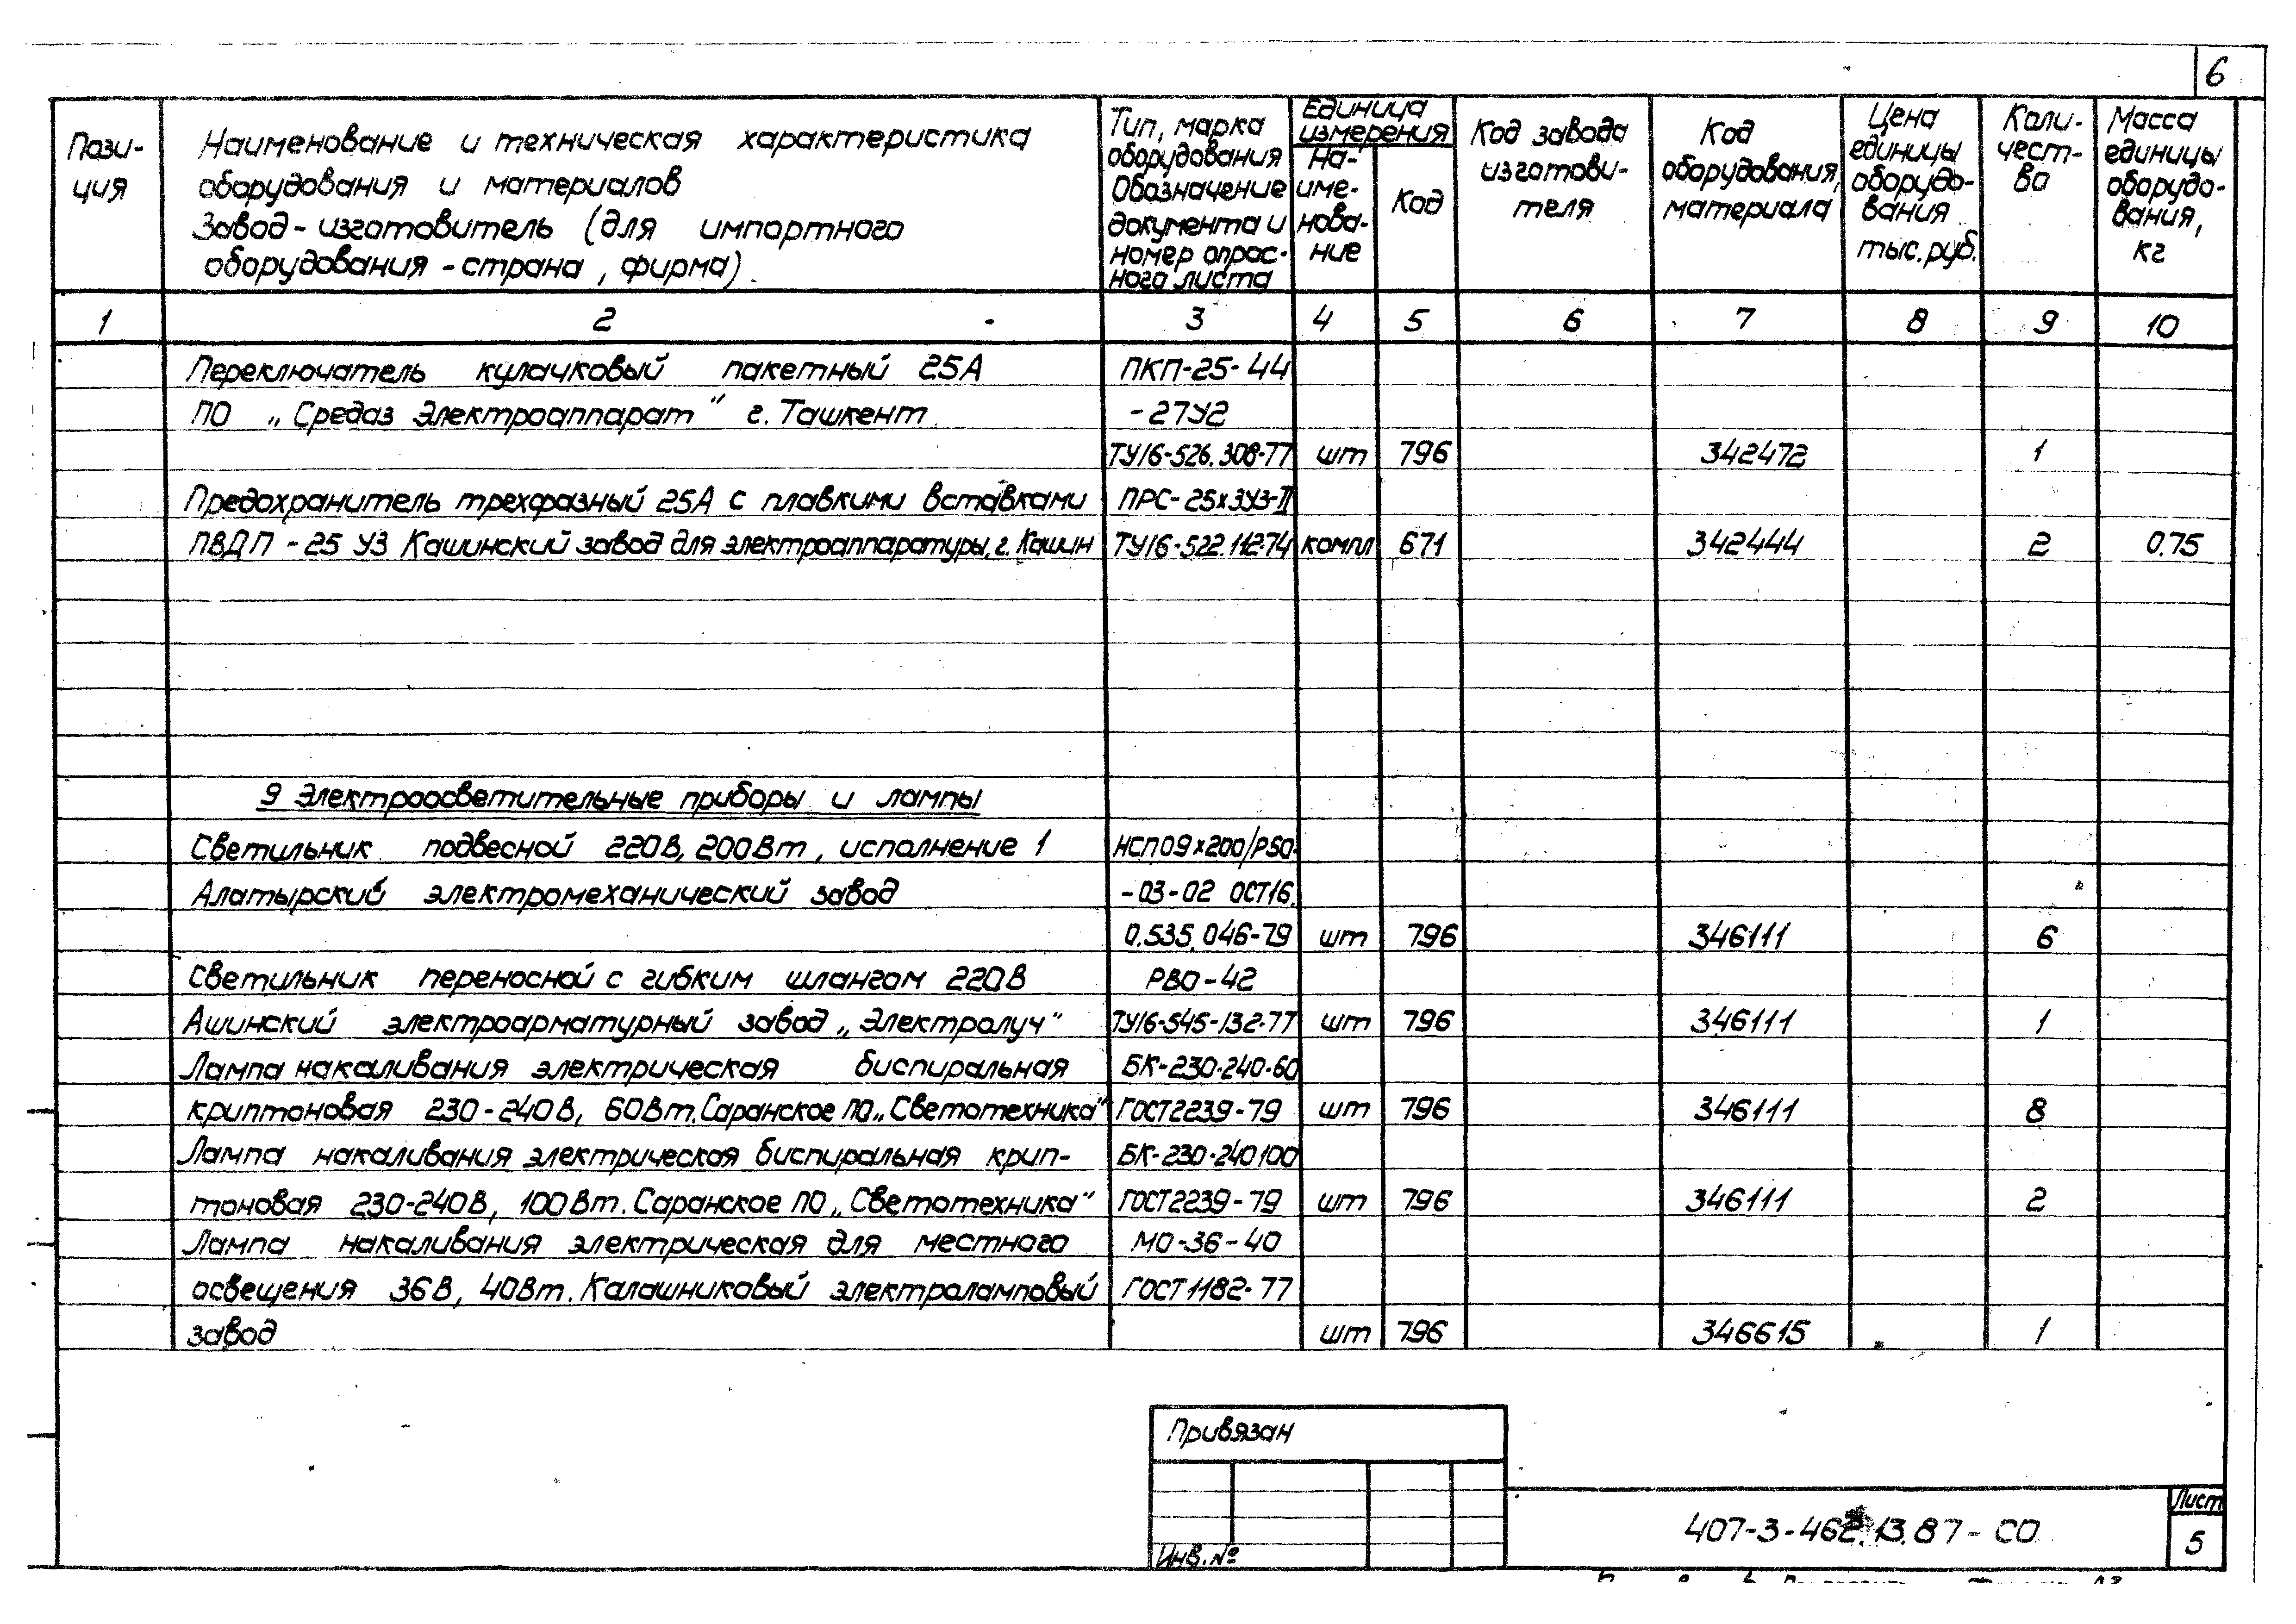 6
Пози-
ция
Наименование и техническая характеристика
оборудования и материалов
Завод-изготовитель (для импортного
оборудования - страна, фирма)
Тип, марка
оборудования
Обозначение
документа и
номер опрос-
ного листа
Единица
измерения
На-
име-
нова-
ние
Код
Код завода
изготови-
теля
Код
оборудования,
материала
Цена
единицы
оборудо-
вания
тыс. руб.
Коли-
чест-
во
Масса
единицы
оборудо-
вания,
кг
1 2 3 4 5 6 7 8 9 10
Переключатель кулачковый пакетный 25А ПКП-25-44
ПО „Средаз Электроаппарат" г. Ташкент -27У2
ТУ16-526.308-77 шт 796 342472 1
Предохранитель трехфазный 25А с плавкими вставками ПРС-25х3У3-II
ПВДП-25 У3 Кашинский завод для электроаппаратуры, г. Кашин ТУ16-522.112-74 компл 671 342444 2 0.75
9 Электроосветительные приборы и лампы
Светильник подвесной 220В, 200Вт, исполнение 1 НСП09х200/Р50-
Алатырский электромеханический завод -03-02 ОСТ16.
0.535.046-79 шт 796 346111 6
Светильник переносной с гибким шлангом 220В РВО-42
Ашинский электроарматурный завод „Электролуч" ТУ16-545-132-77 шт 796 346111 1
Лампа накаливания электрическая биспиральная БК-230-240-60
криптоновая 230-240В, 60Вт. Саранское ПО „Светотехника" ГОСТ 2239-79 шт 796 346111 8
Лампа накаливания электрическая биспиральная крип- БК-230-240 100
тоновая 230-240В, 100Вт. Саранское ПО „Светотехника" ГОСТ 2239-79 шт 796 346111 2
Лампа накаливания электрическая для местного МО-36-40
освещения 36В, 40Вт. Калашниковый электроламповый ГОСТ 1182-77
завод шт 796 346615 1
Привязан
Инв. №
407-3-462.13.87-СО
Лист
5